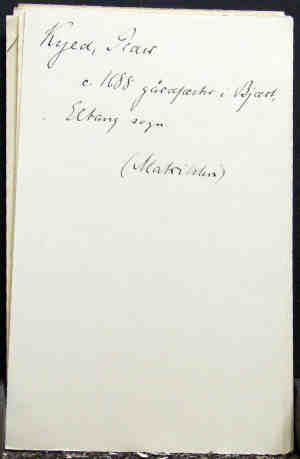 Kyed, Staw
c. 1688 gårdfæster i Bjært,
Eltang sogn
(Matriklen)